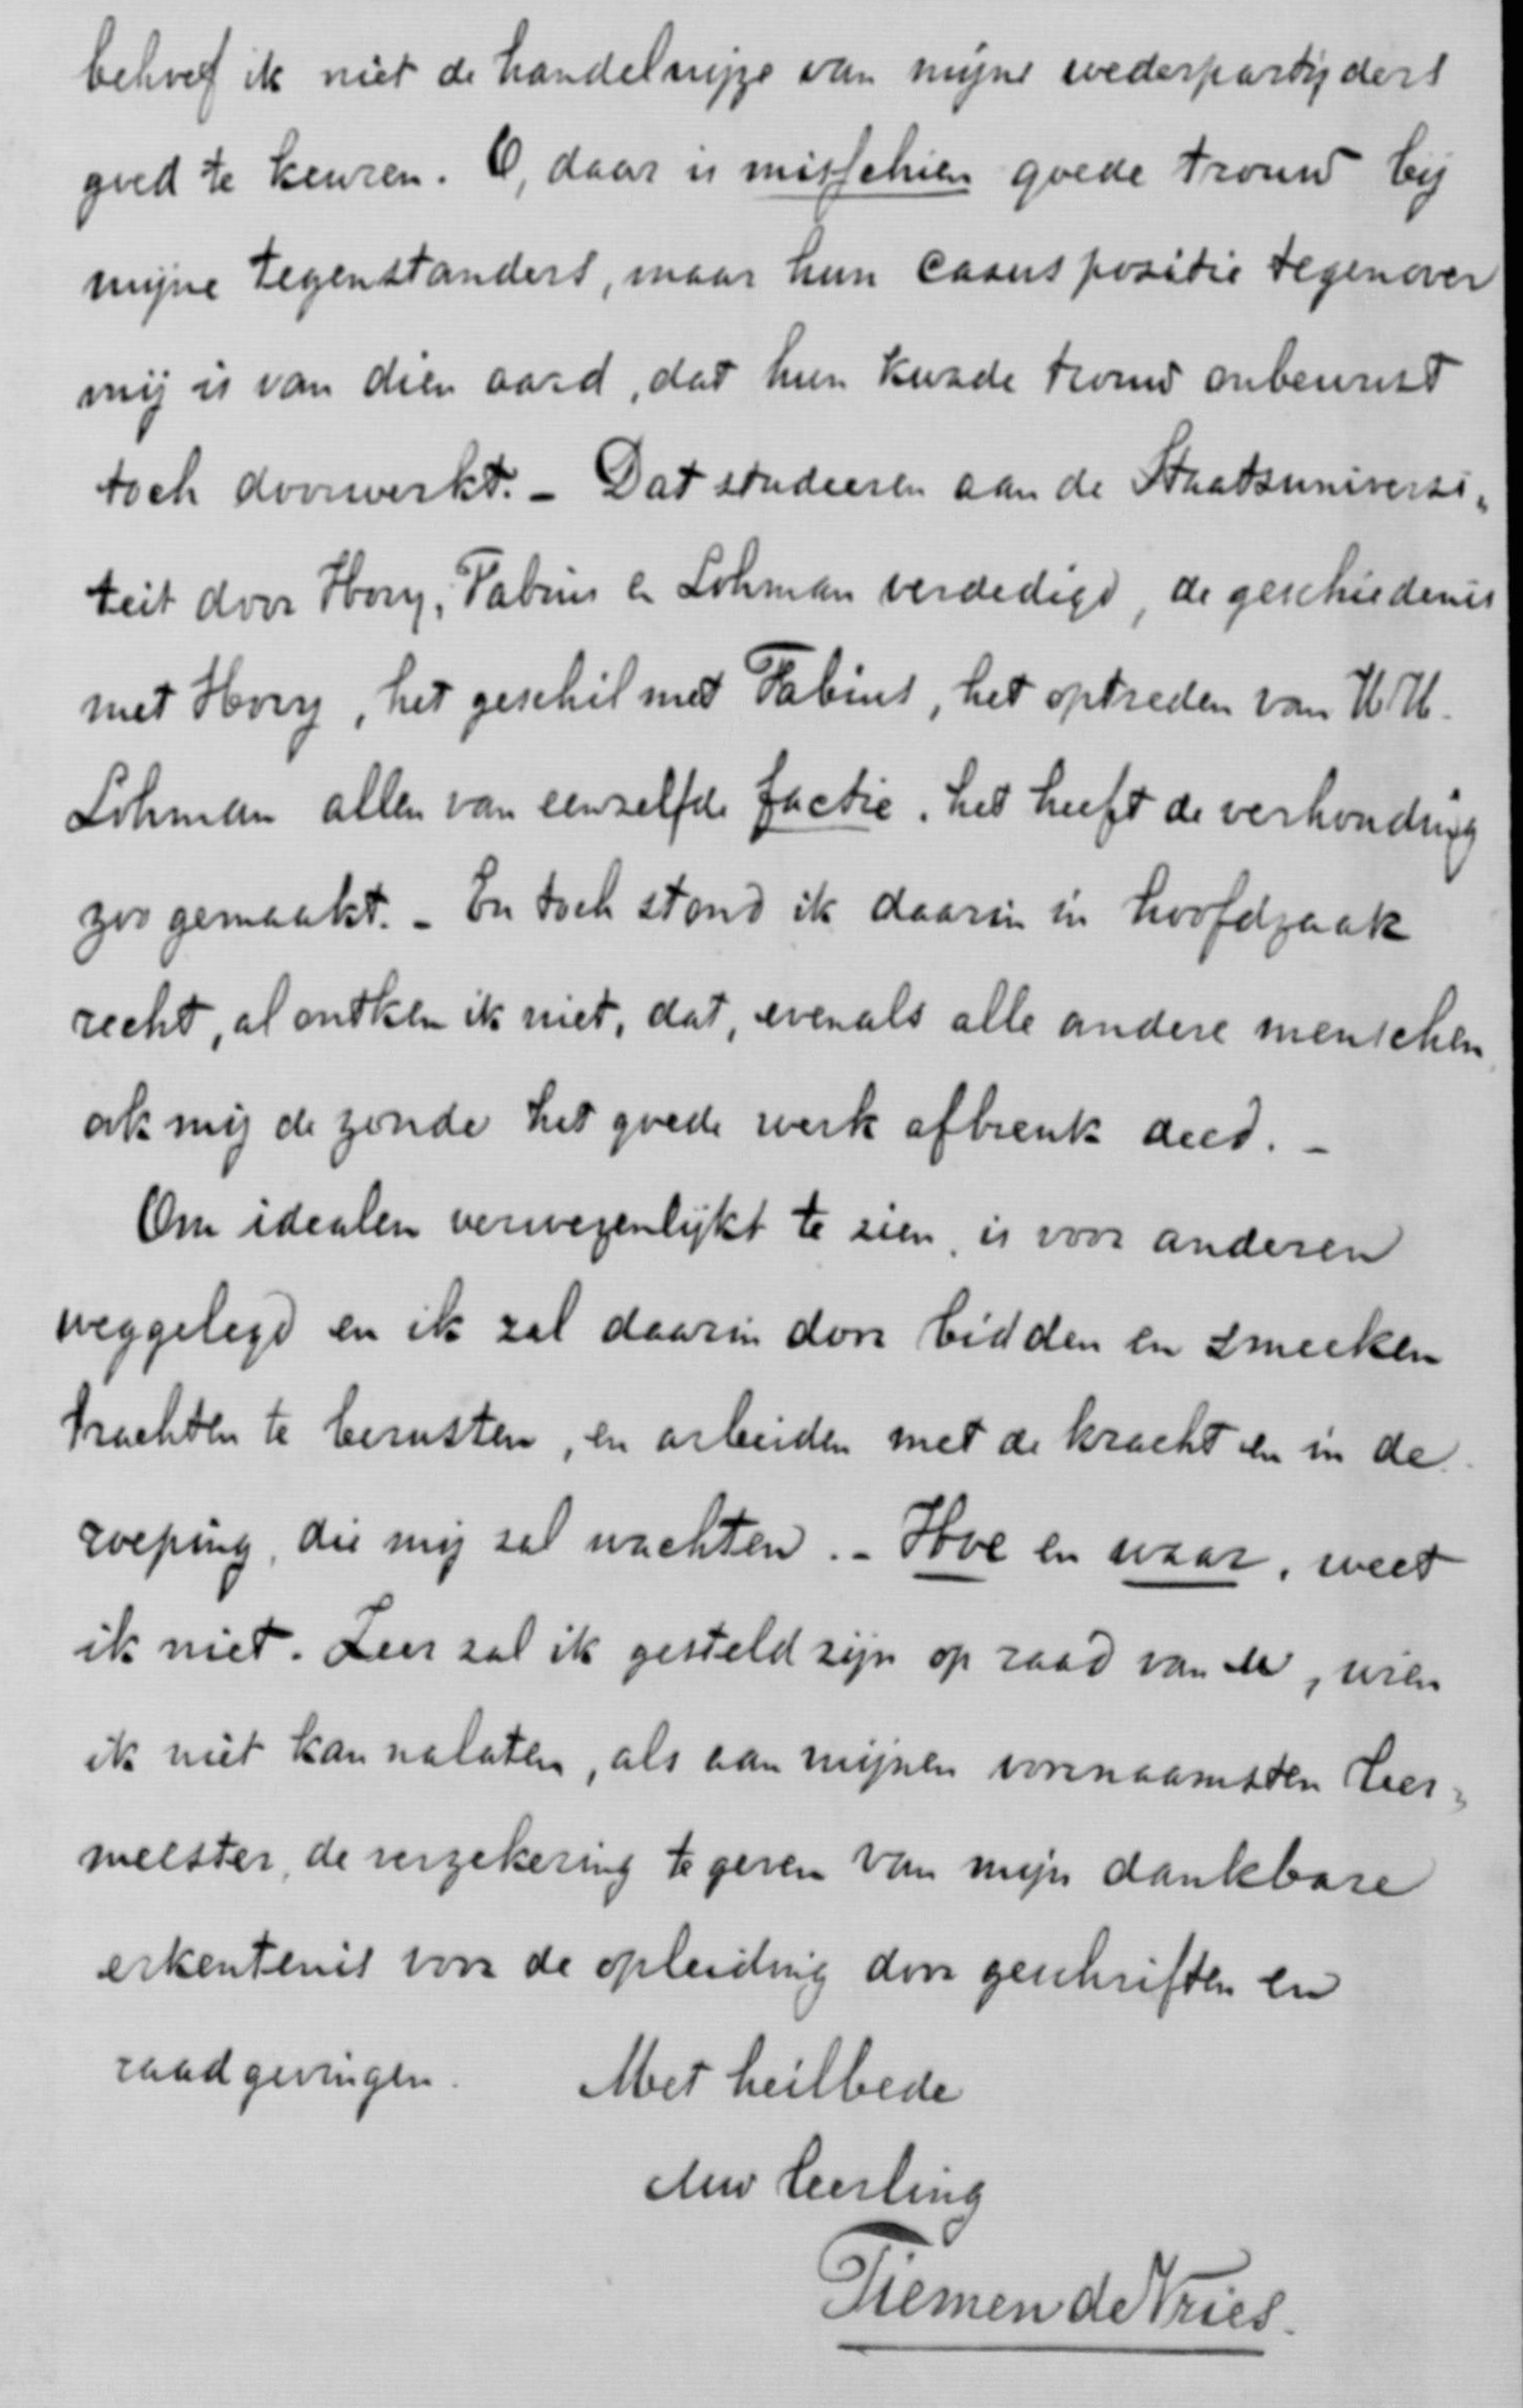 behoef ik niet de handelwijze van mijne wederpartijders
goed te keuren. O, daar is misschien goede trouw bij
mijne tegenstanders, maar hun casuspositie tegenover
mij is van dien aard, dat hun kwade trouw onbewust
toch doorwerkt. – Dat studeeren aan de Staatsuniversi„
teit door Hovy, Fabius en Lohman verdedigd, de geschiedenis
met Hovy, het geschil met Fabius, het optreden van W.H.
Lohman allen van eenzelfde factie, het heeft de verhouding
zoo gemaakt. – En toch stond ik daarin in hoofdzaak
recht, al ontken ik niet, dat, evenals alle andere menschen
ook mij de zonde het goede werk afbreuk deed. –
Om idealen verwezenlijkt te zien, is voor anderen
weggelegd en ik zal daarin door bidden en smeeken
trachten te berusten, en arbeiden met de kracht en in de
roeping, die mij zal wachten. – Hoe en waar, weet
ik niet. Zeer zal ik gesteld zijn op raad van U, wien
ik niet kan nalaten, als aan mijnen voornaamsten leer„
meester, de verzekering te geven van mijn dankbare
erkentenis voor de opleiding door geschriften en
raadgevingen. Met heilbede
Uw leerling
Tiemen de Vries.